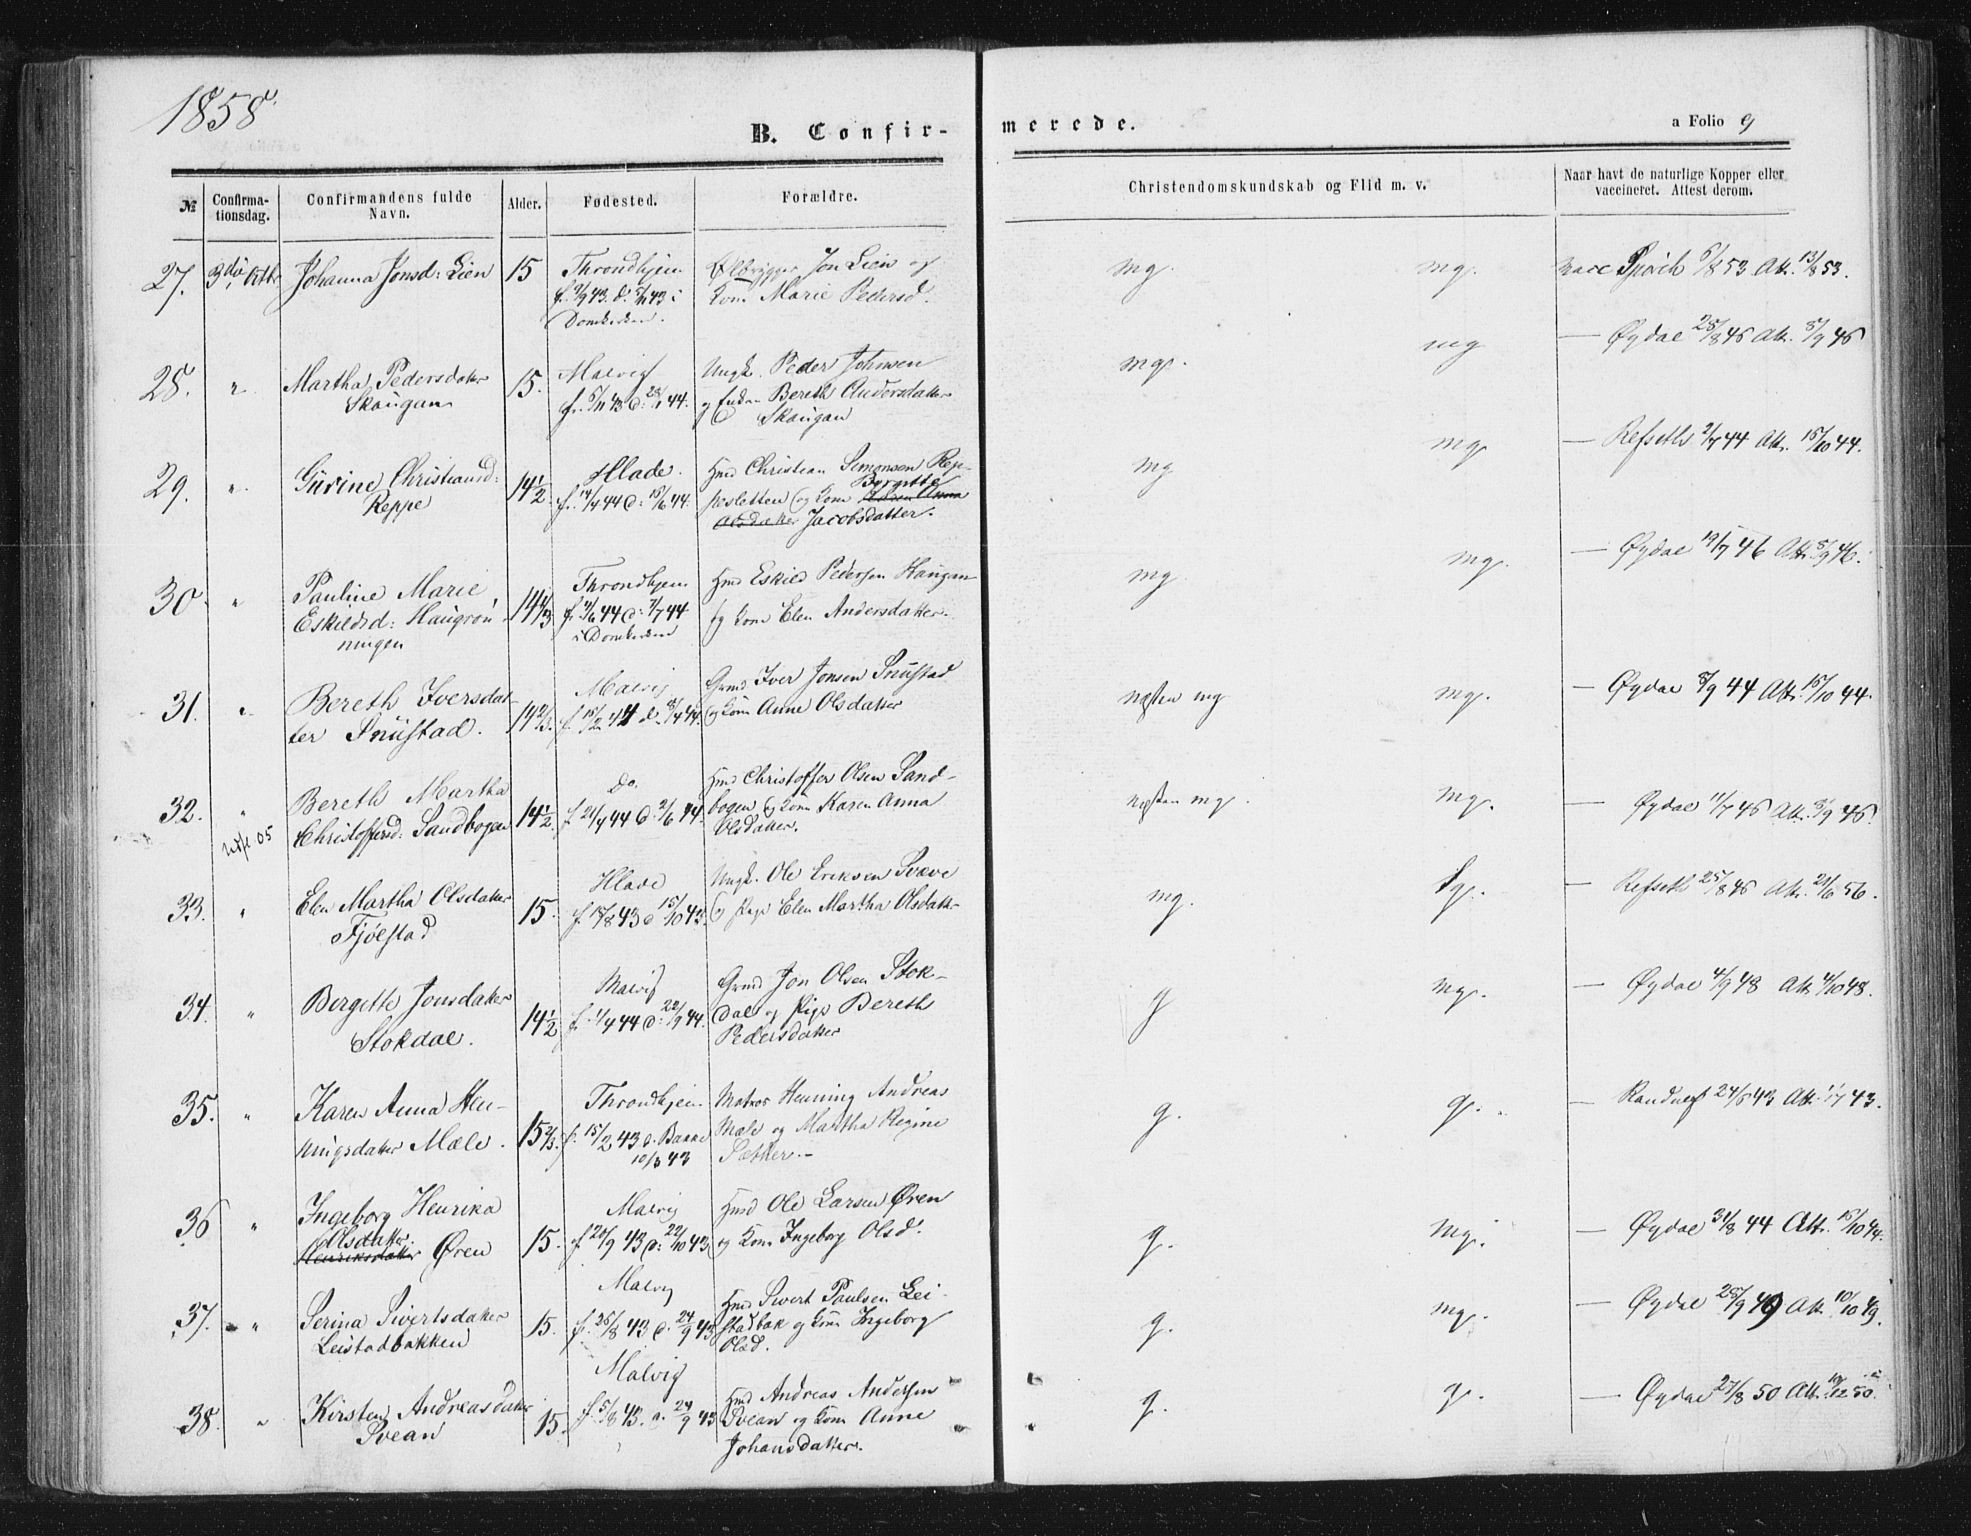 1858
B. Confir-
merede.
a Folio 9
№
Confirma-
tionsdag.
Confirmandens fulde
Navn.
Alder.
Fødested.
Forældre.
Christendomskundskab og Flid m. v.
Naar havt de naturlige Kopper eller
vaccineret. Attest derom.
27. 3die Octbr Johanna Jonsd: Lien 15 Throndhjem Ølbrygger Jon Lien og mg. mg. 6/8 53 Att. 13/8 53.
43 i Kone Marie Pedersd.
Domkirken.
28. " Martha Pedersdatter 15. Malvig Ungk. Peder Johnsen mg. mg — Øydal 25/8 45 Att. 8/9 45
Skaugan f. 5/11 43 d: 28/1 44. og Enken Bereth Andersdatter
Skaugan
29. " Gurine Christiansd: 14½ Hlade. Hmd Christian Simonsen Rep- mg mg. — Refseth 2/7 44 Att. 15/10 44.
Reppe f. 14/4 44 d: 15/6 44. pesletten og Kone Byrgitte
Olsdatter Jacobsdatter.
30. " Pauline Marie 14⅓ Throndhjem Hmd Eskild Pedersen Haugan mg. mg. — Øydal 19/7 46 Att. 8/9 46.
Eskildsd: Haugrøn- 44 d: 7/7 44 og Kone Elen Andersdatter.
ningen i Domkirken
31. " Bereth Iversdat- 14⅔ Malvig Grmd Iver Jonsen Snustad næsten mg mg. — Øydal 8/9 44 Att. 15/10 44.
ter Snustad. f. 15/2 44 d. 8/4 44. og Kone Anne Olsdatter
32. " Bereth Martha 14½ Do. Hmd Christoffer Olsen Sand- næsten mg. mg. — Øydal 11/7 45 Att. 8/9 45.
05 Christoffersd: Sandbogen f. 21/4 44 d. 2/6 44. bogen og Kone Karen Anna
Olsdatter.
33. " Elen Martha Olsdatter 15. Hlade Ungk. Ole Eriksen Svæve mg. — Refseth 25/8 45 Att. 21/6 56.
Fjølstad f. 18/8 43 d 15/10 43. og Pige Elen Martha Olsdatter
34. " Bergitte Jonsdatter 14½ Malvig Grmd Jon Olsen Stok- g mg. — Øydal 4/9 48 Att. 4/10 48.
Stokdal. f. 1/4 44 d: 22/9 44. dal og Pige Bereth
Pedersdatter
35. " Karen Anna Hen- 15⅔. Throndhjem Matros Henning Andreas g. g. — 24/5 43 Att. 1/7 43.
ningsdatter Mæle. f. 15/2 43 d. Bakke Mæle og Martha Regine
10/3 43 Sæther.
36 " Ingeborg Henrika 15. Malvig Hmd Ole Larsen Øren g. mg. — Øydal 31/8 44 Att. 15/10 44.
Olsdatter f. 20/9 43 d: 22/10 43 og Kone Ingeborg Olsd.
Henriksdatter Øren
37. " Serina Sivertsdatter 15. Malvig Hmd Sivert Paulsen Lei- g. mg. — Øydal 28/9 49 Att. 10/10 49.
Leistadbakken f. 26/8 43 d. 24/9 43 stadbak og Kone Ingeborg
Olsd.
38. " Kirsten Andreasdatter 15. Malvig Hmd Andreas Andersen g. g. — Øydal 27/8 50 Att. 50.
Svean f. 5/8 43. d. 24/9 43 Svean og Kone Anne
Johansdatter.